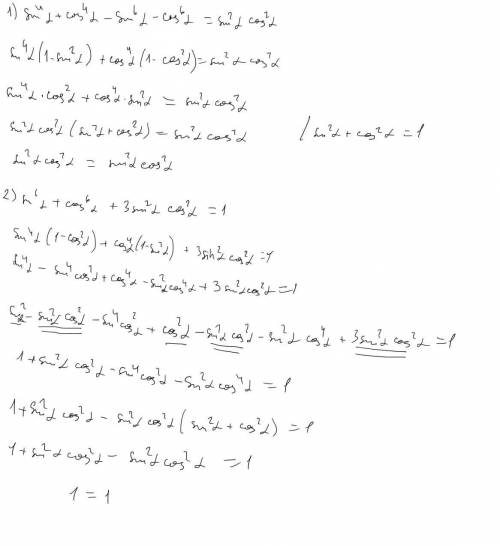 1) sin⁴α + cos⁴α - sin⁶α - cos⁶α = sin²α cos²α
sin⁴α(1-sin²α) + cos⁴α(1-cos²α) = sin²α cos²α
sin⁴α · cos²α + cos⁴α · sin²α = sin²α cos²α
sin²α cos²α (sin²α + cos²α) = sin²α cos²α / sin²α + cos²α = 1
sin²α cos²α = sin²α cos²α
2) sin⁶α + cos⁶α + 3sin²α cos²α = 1
sin⁴α (1-cos²α) + cos⁴α (1-sin²α) + 3sin²α cos²α = 1
sin⁴α - sin⁴α cos²α + cos⁴α - sin²α cos⁴α + 3 sin²α cos²α = 1
sin²α - sin²α cos²α - sin⁴α cos²α + cos²α - sin²α cos²α - sin²α cos⁴α + 3sin²α cos²α = 1
1 + sin²α cos²α - sin⁴α cos²α - sin²α cos⁴α = 1
1 + sin²α cos²α - sin²α cos²α (sin²α + cos²α) = 1
1 + sin²α cos²α - sin²α cos²α = 1
1 = 1